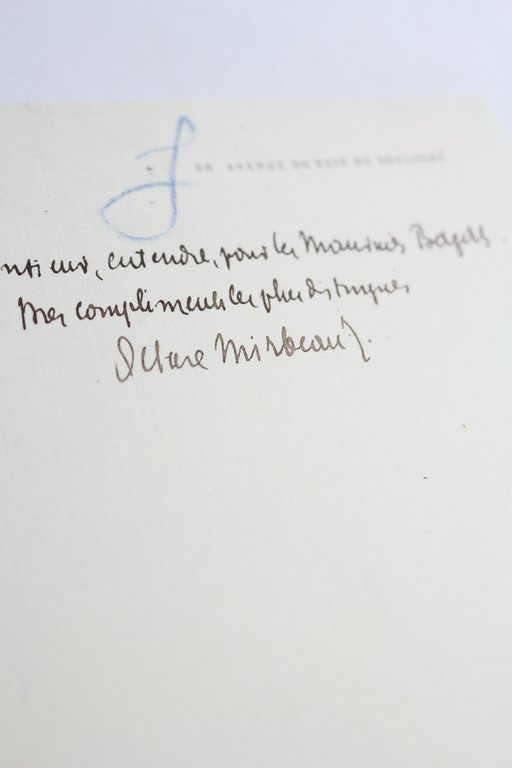 68 AVENUE DU BOIS DE BOULOGNE
entendre, pour les
Mes compliments les plus distingués
Octave Mirbeau